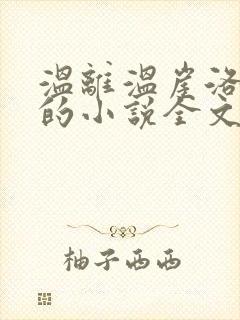 温離温崖洛
的小説全文
柚子西西